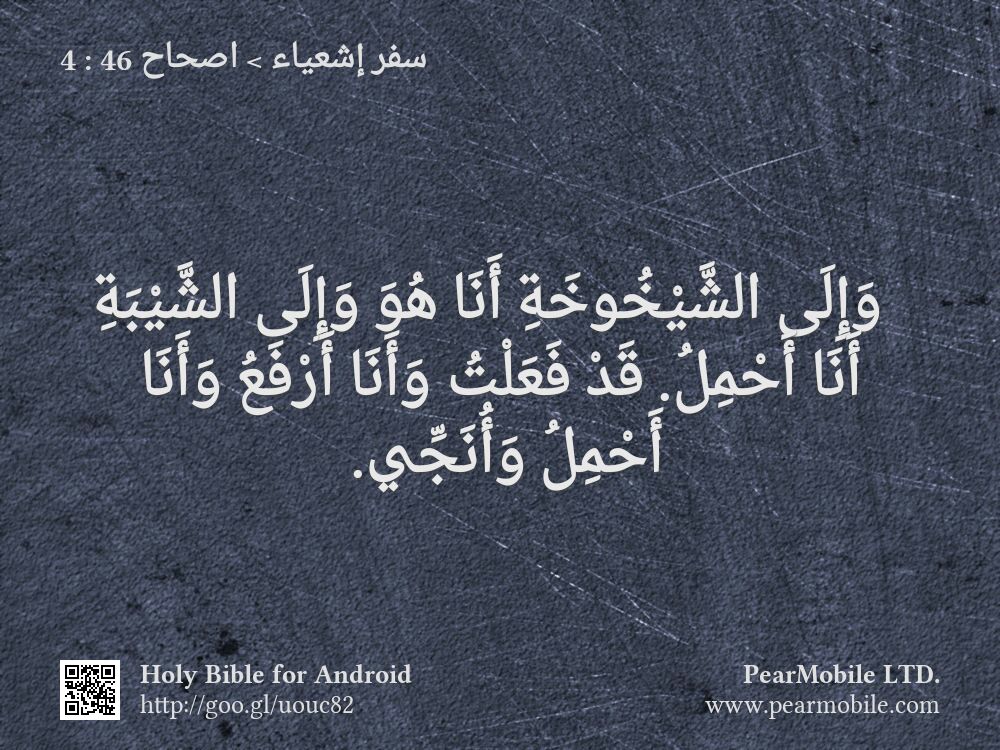 سفر إشعياء > اصحاح 46 : 4
وَإِلَى الشَّيْخُوخَةِ أَنَا هُوَ وَإِلَى الشَّيْبَةِ
أَنَا أَحْمِلُ. قَدْ فَعَلْتُ وَأَنَا أَرْفَعُ وَأَنَا
أَحْمِلُ وَأُنَجِّي.
Holy Bible for Android
http://goo.gl/uouc82
PearMobile LTD.
www.pearmobile.com